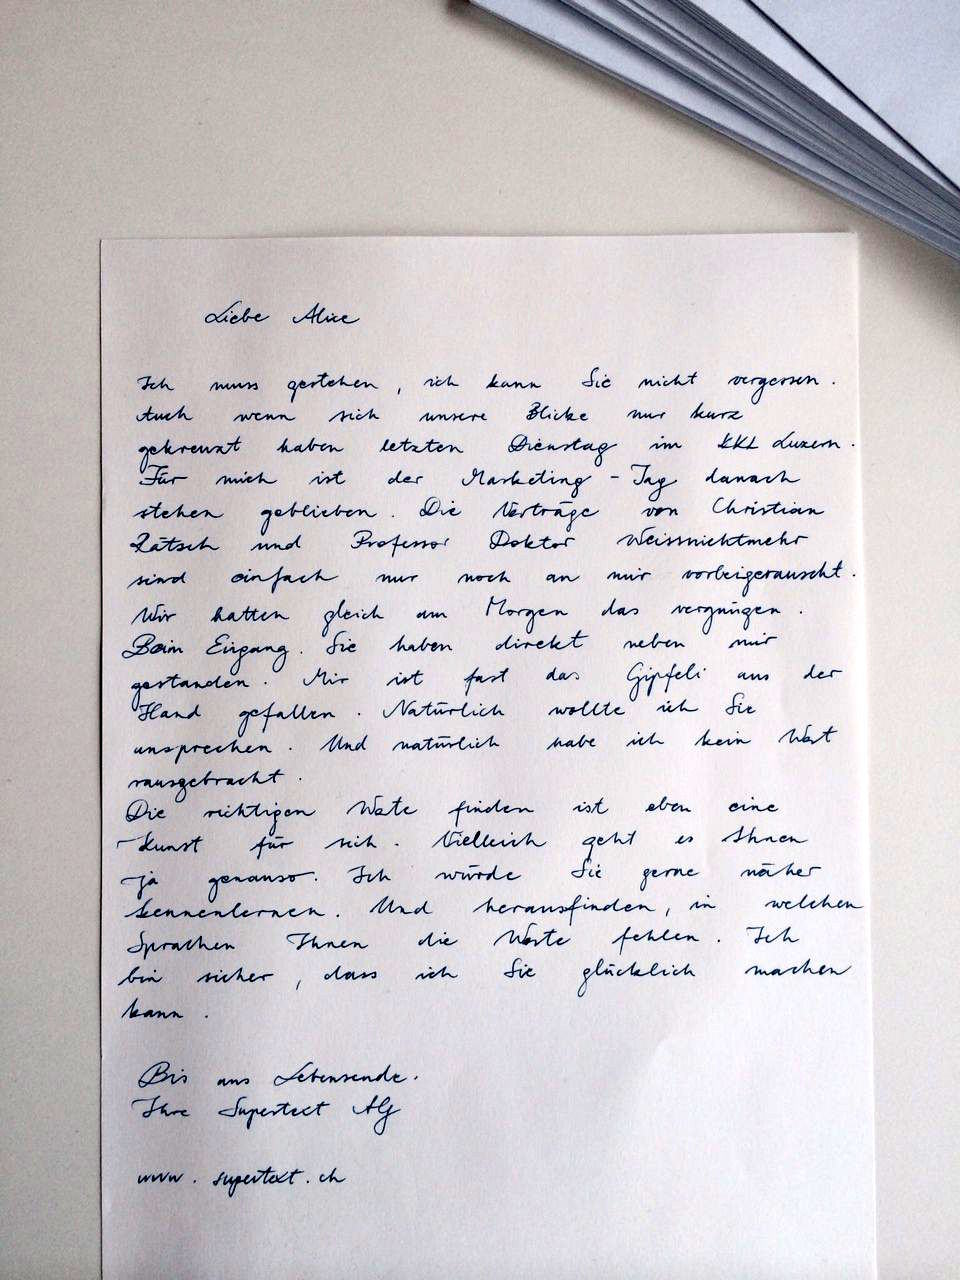 Liebe Alice
Ich muss gestehen, ich kann Sie nicht vergessen.
Auch wenn sich unsere Blicke nur kurz
gekreuzt haben letzten Dienstag im KKL Luzern.
Für mich ist der Marketing-Tag danach
stehen geblieben. Die Vorträge von Christian
Rätsch und Professor Doktor Weissnichtmehr
sind einfach nur noch an mir vorbeigerauscht.
Wir hatten gleich am Morgen das vergnügen.
Beim Eingang. Sie haben direkt neben mir
gestanden. Mir ist fast das Gipfeli aus der
Hand gefallen. Natürlich wollte ich Sie
ansprechen. Und natürlich habe ich kein Wort
rausgebracht.
Die richtigen Worte finden ist eben eine
Kunst für sich. Vielleich geht es Ihnen
ja genauso. Ich würde Sie gerne näher
kennenlernen. Und herausfinden, in welchen
Sprachen Ihnen die Worte fehlen. Ich
bin sicher, dass ich Sie glücklich machen
kann.
Bis ans Lebensende.
Ihre Supertext AG
www.supertext.ch